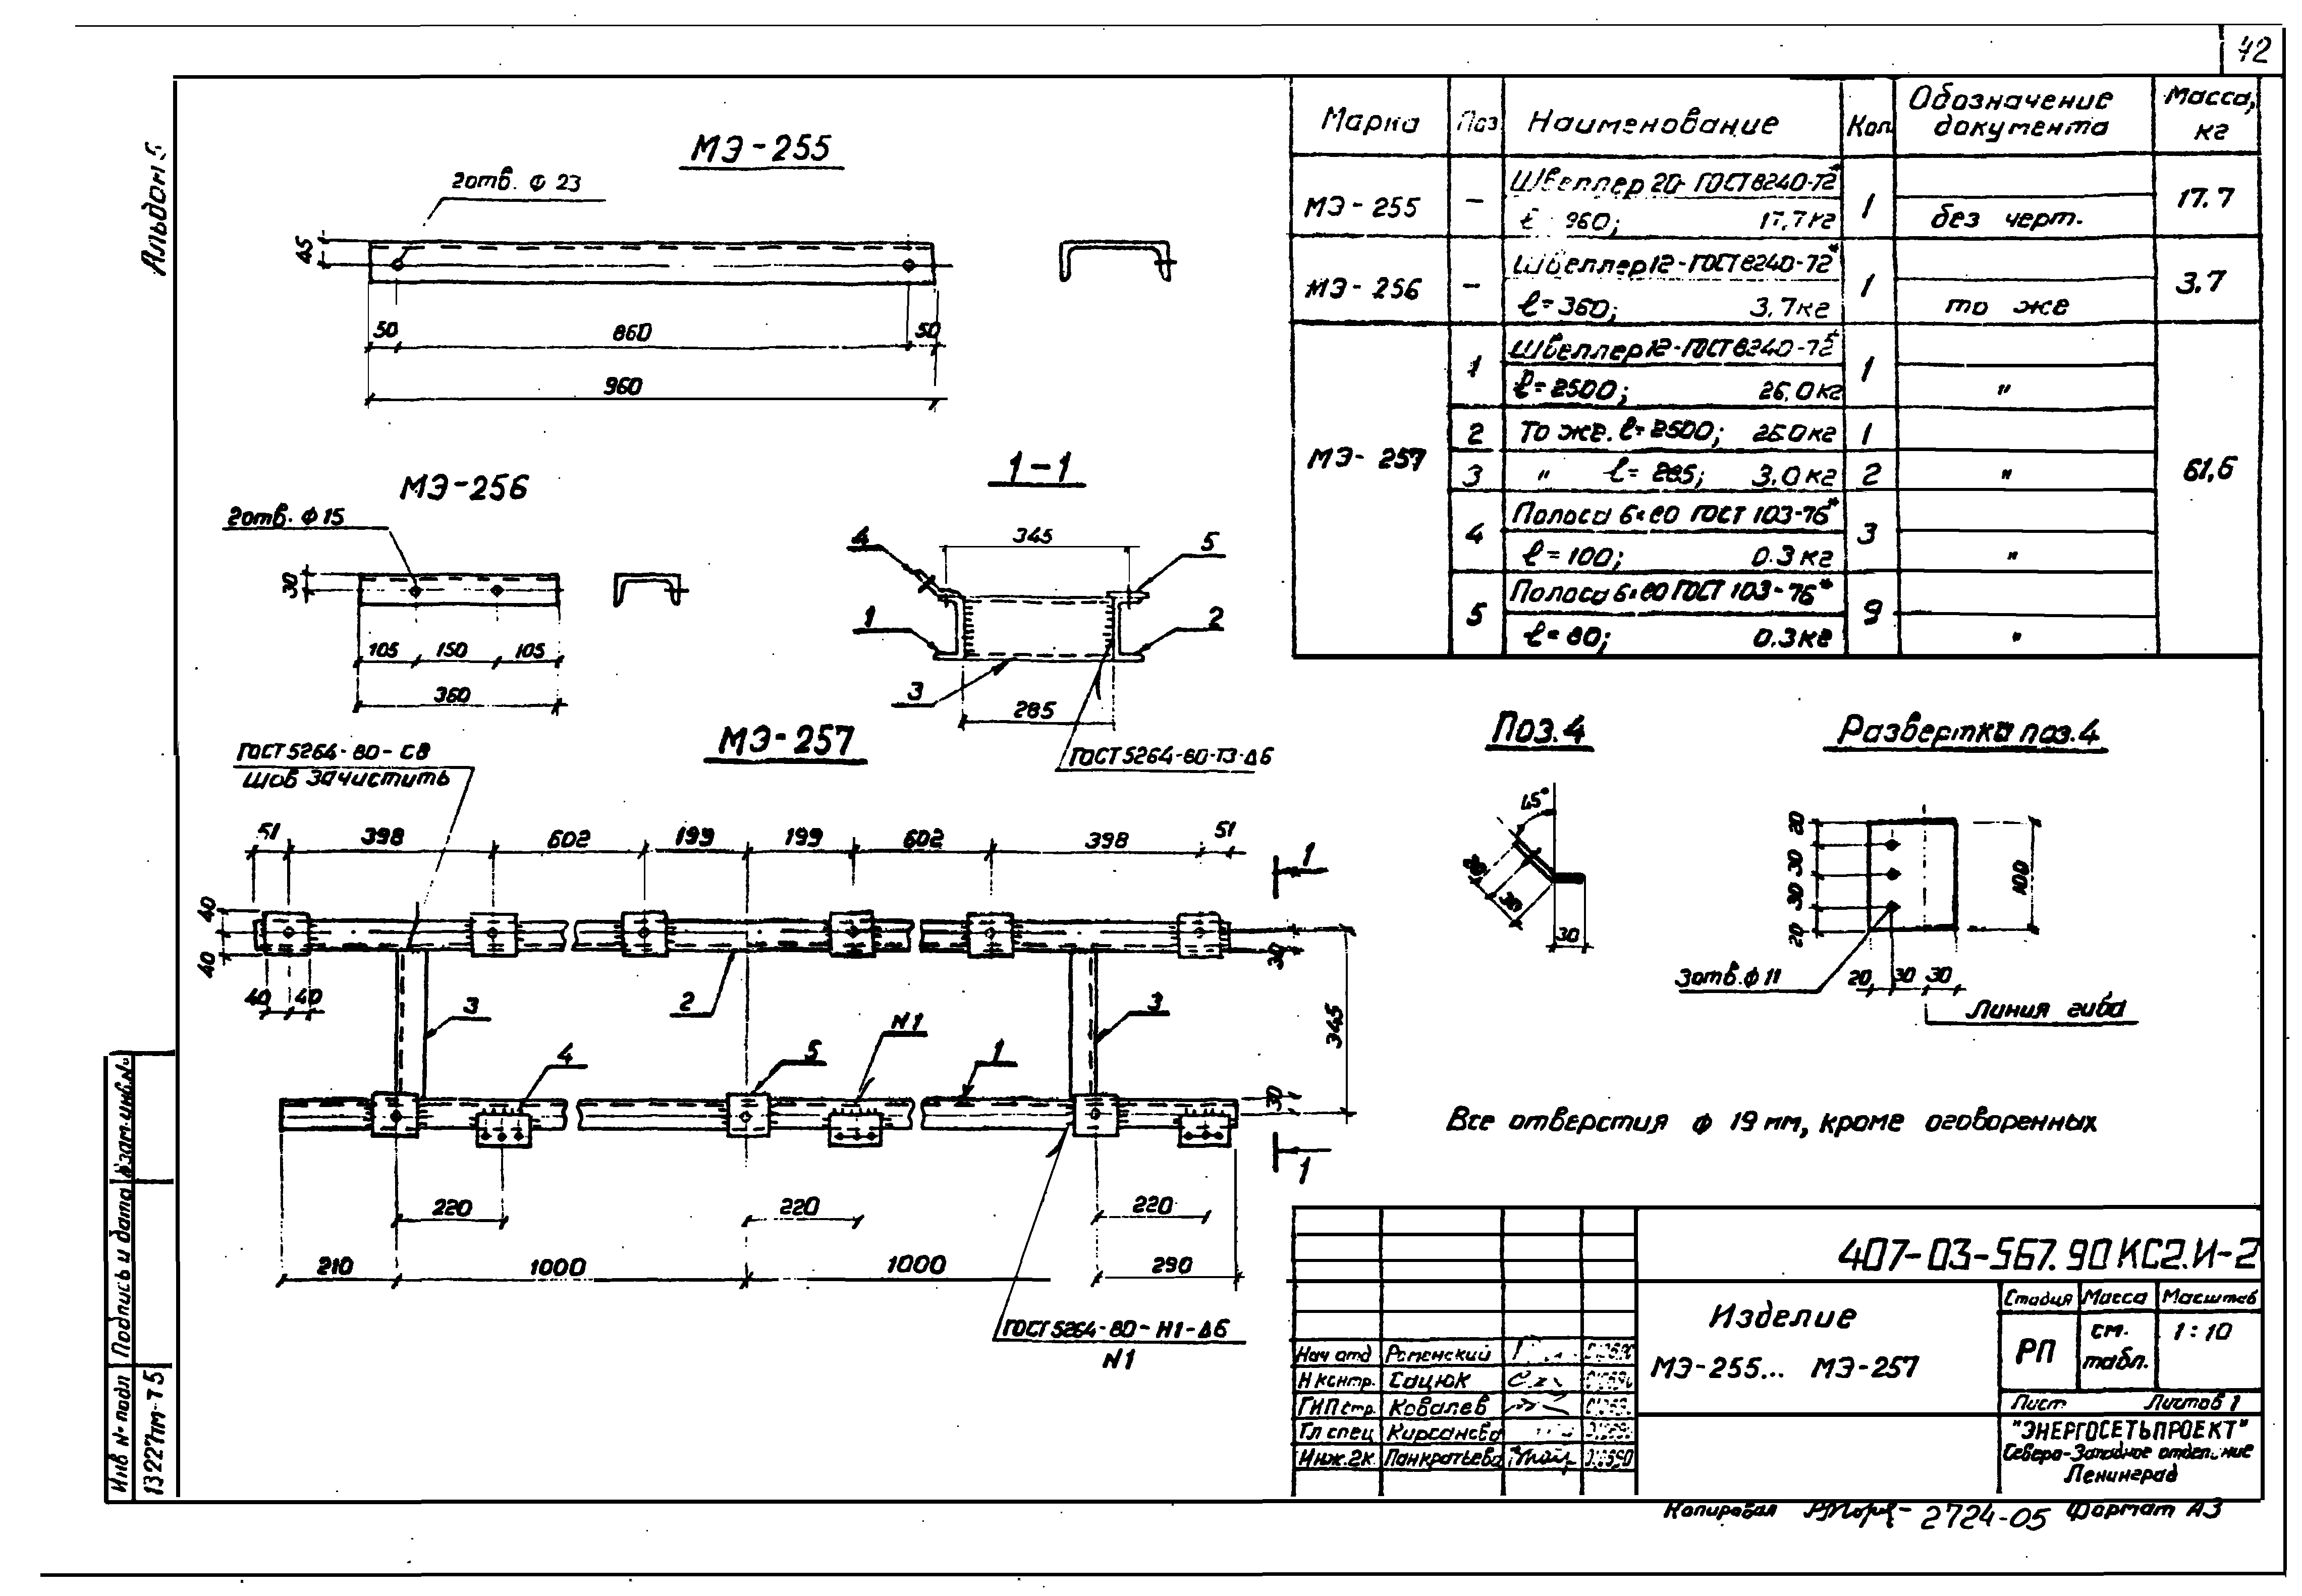 42
Альбом 5
МЭ-255
2отв. Ф 23
45
50 860 50
960
МЭ-256
2отв. Ф 15
30
105 150 105
360
1-1
345
4
5
1
2
3
285
ГОСТ 5264-80-Т3-Δ6
Марка Поз Наименование Кол Обозначение документа Масса, кг
МЭ-255 - Швеллер 20 ГОСТ 8240-72* 1 17.7
ℓ=960; 17,7кг без черт.
МЭ-256 - Швеллер 12-ГОСТ 8240-72* 1 3.7
ℓ=360; 3,7кг то же
МЭ-257 1 Швеллер 12-ГОСТ 8240-72* 1 61,6
ℓ=2500; 26,0кг "
2 То же. ℓ=2500; 26.0кг 1
3 " ℓ=285; 3,0кг 2 "
4 Полоса 6×80 ГОСТ 103-76* 3
ℓ=100; 0.3кг "
5 Полоса 6×80 ГОСТ 103-76* 9
ℓ=80; 0.3кг "
МЭ-257
ГОСТ 5264-80-С8
Шов зачистить
51 398 602 199 199 602 398 51
1
40
40
40 40
3
2
N1
3
4
5
1
30
345
30
1
220 220 220
210 1000 1000 290
ГОСТ 5264-80-Н1-Δ6
N1
Поз.4
45°
30
30
Развертка поз.4
20
30
30
20
100
3отв.Ф 11
20 30 30
Линия гиба
Все отверстия Ф 19 мм, кроме оговоренных
407-03-567.90 КС2.И-2
Изделие
МЭ-255... МЭ-257
Стадия Масса Масштаб
РП см. табл. 1:10
Лист Листов 1
"ЭНЕРГОСЕТЬПРОЕКТ"
Северо-Западное отделение
Ленинград
Нач отд Роменский
Н контр. Сацюк
ГИП стр. Ковалев
Гл спец Кирсанова
Инж.2к. Панкратьева
Взам.инв.№
Подпись и дата
Инв № подл
13227тм-Т5
Копировал
2724-05
Формат А3